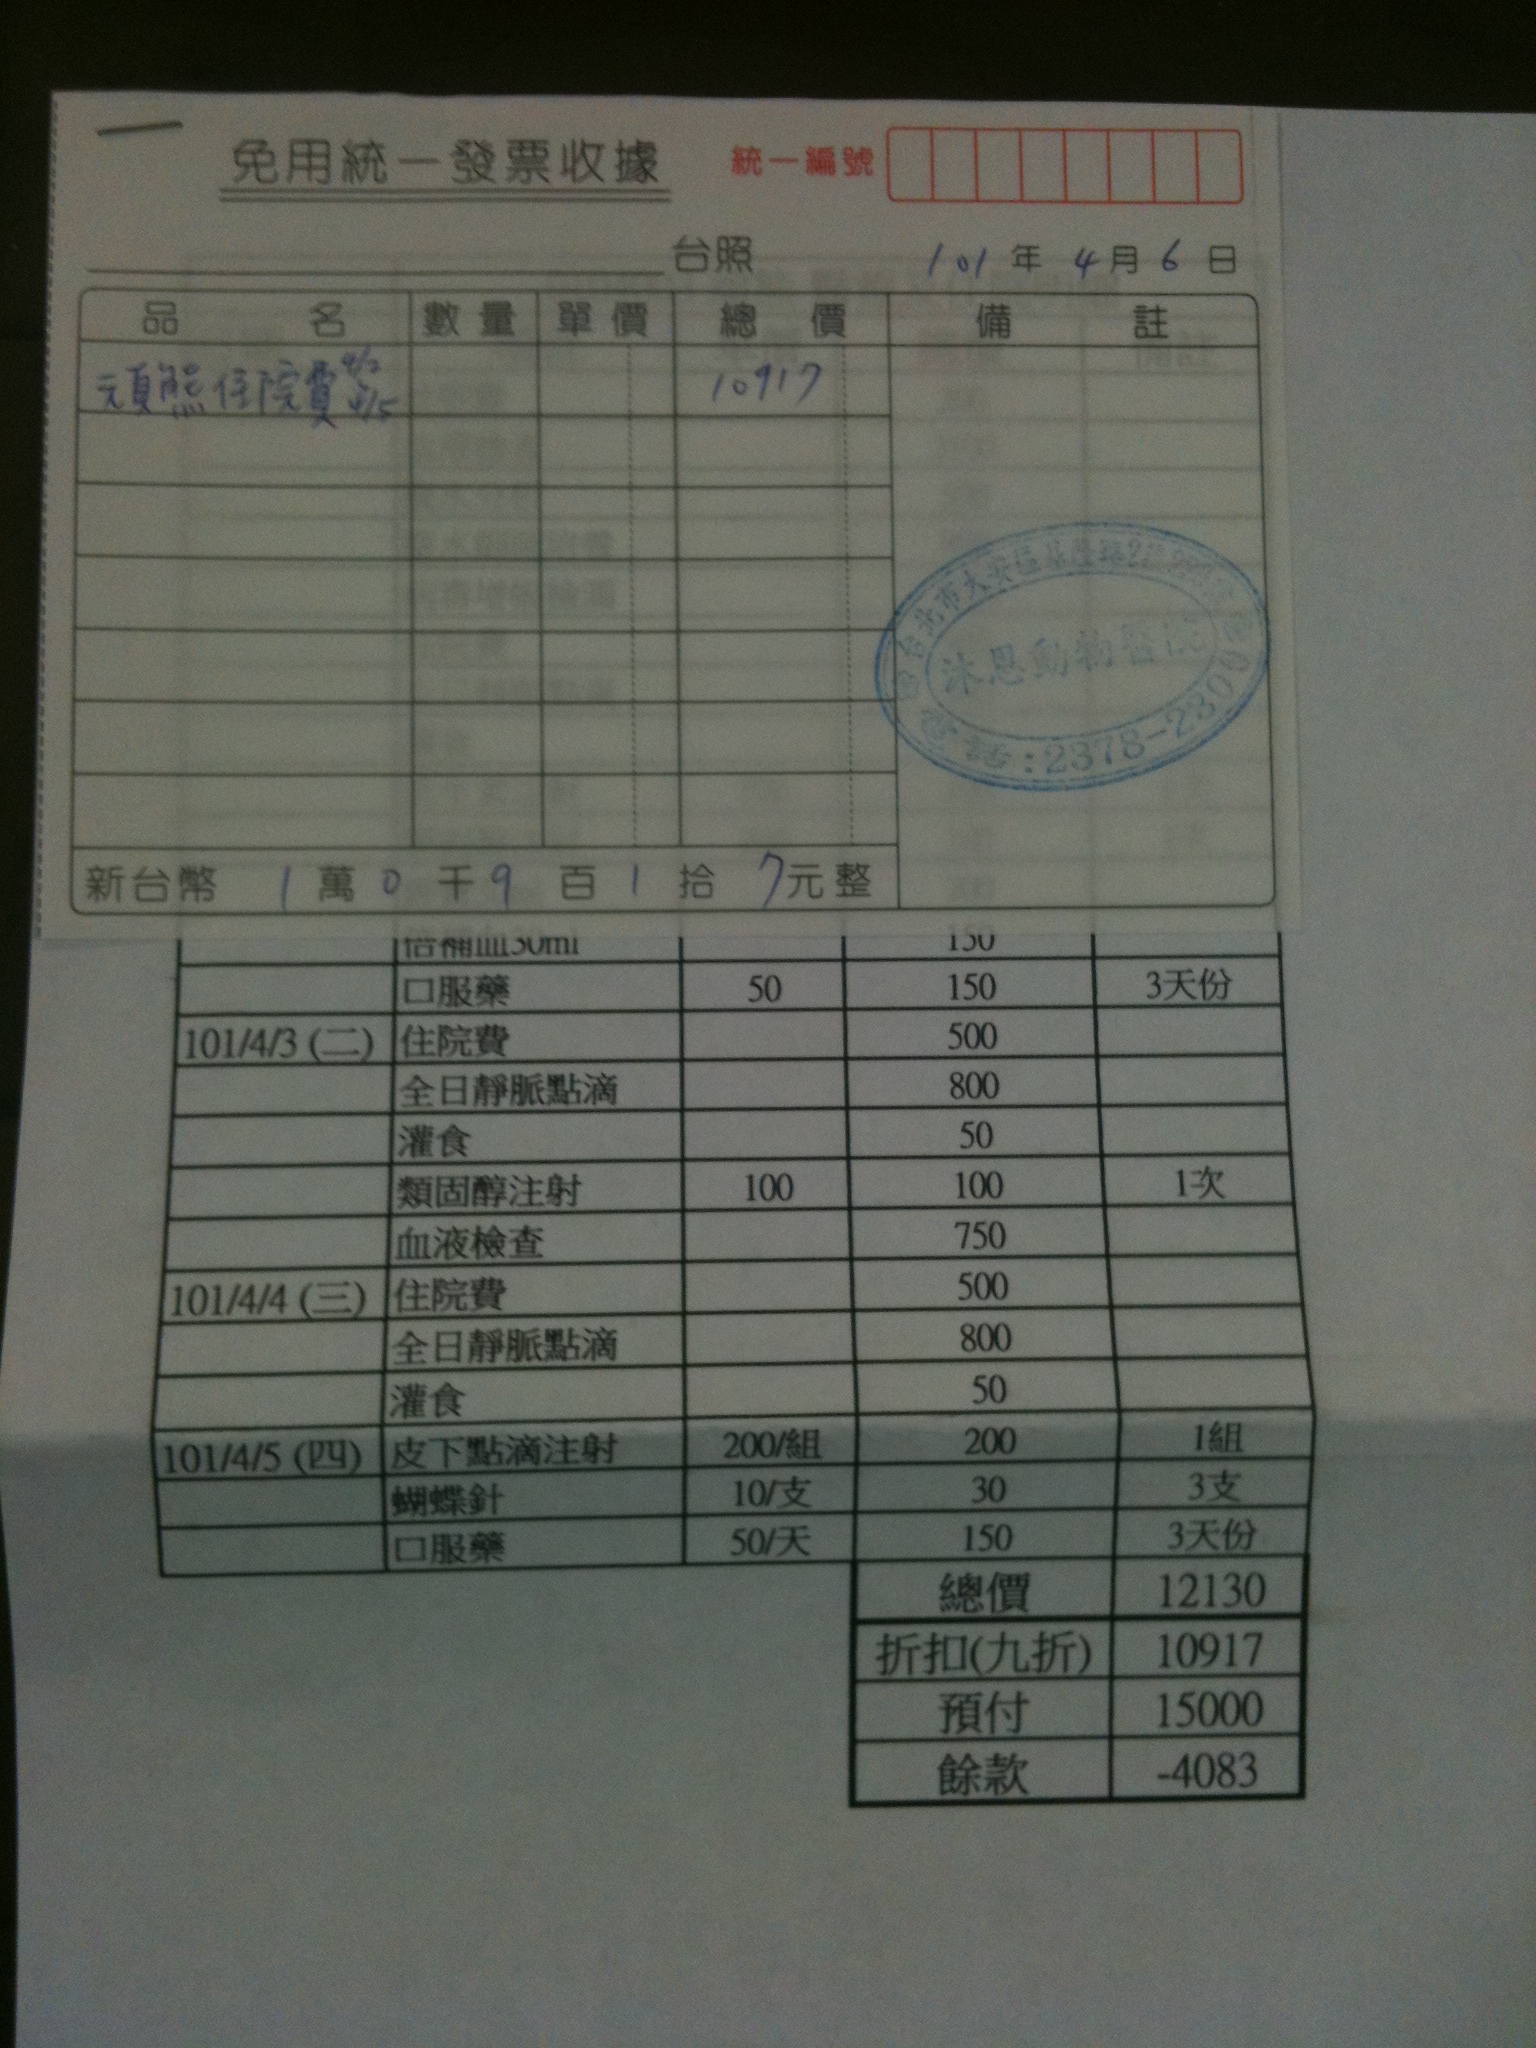 免用統一發票收據 統一編號
台照 101年4月6日
品名 數量 單價 總價 備註
頑熊住院費 4/5 10917
台北市大安區基隆路
沐恩動物醫院
電話:2378-280
新台幣 1萬0千9百1拾7元整
倍補血30ml 150
口服藥 50 150 3天份
101/4/3 (二) 住院費 500
全日靜脈點滴 800
灌食 50
類固醇注射 100 100 1次
血液檢查 750
101/4/4 (三) 住院費 500
全日靜脈點滴 800
灌食 50
101/4/5 (四) 皮下點滴注射 200/組 200 1組
蝴蝶針 10/支 30 3支
口服藥 50/天 150 3天份
總價 12130
折扣(九折) 10917
預付 15000
餘款 -4083